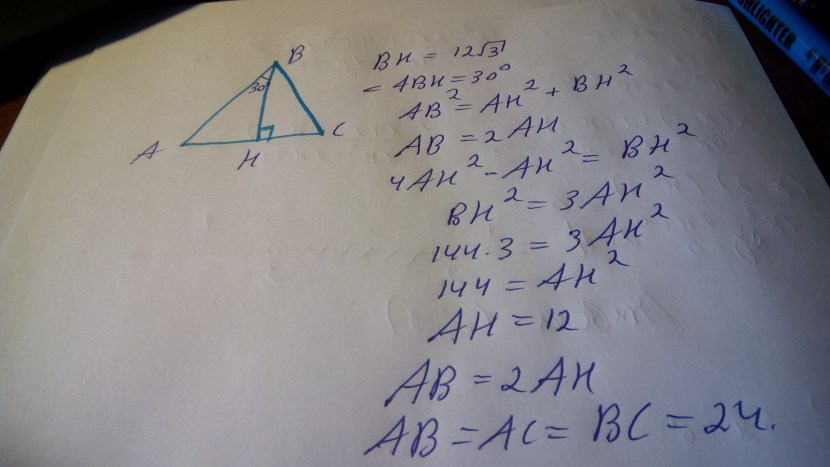 B
30
A
H
C
BH = 12√3
= ABH = 30°
AB² = AH² + BH²
AB = 2AH
4AH² - AH² = BH²
BH² = 3AH²
144·3 = 3AH²
144 = AH²
AH = 12
AB = 2AH
AB = AC = BC = 24.
HLIGHTER